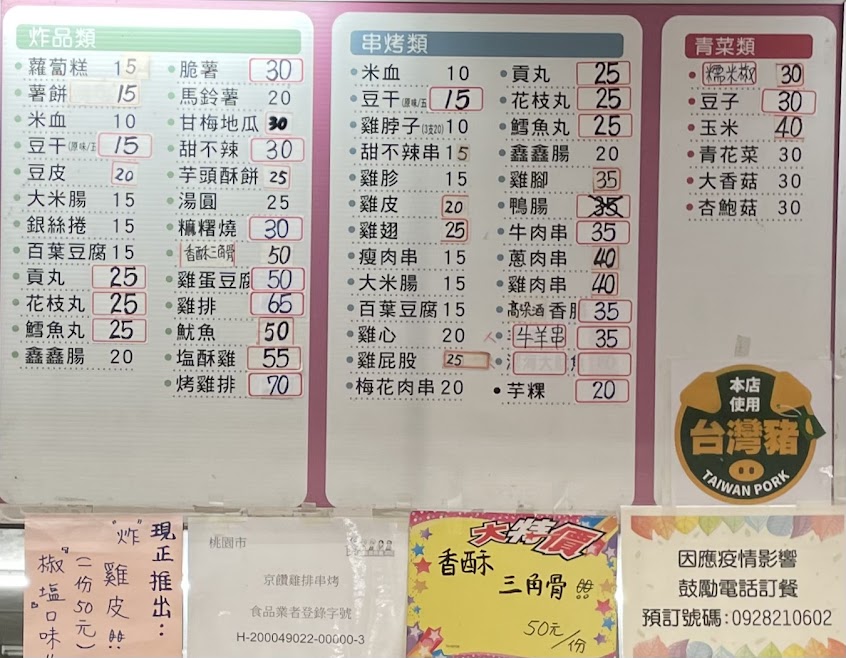 炸品類
蘿蔔糕 15
薯餅 15
米血 10
豆干(原味/五 15
豆皮 20
大米腸 15
銀絲捲 15
百葉豆腐 15
貢丸 25
花枝丸 25
鱈魚丸 25
鑫鑫腸 20
脆薯 30
馬鈴薯 20
甘梅地瓜 30
甜不辣 30
芋頭酥餅 25
湯圓 25
糯糬燒 30
香酥三角骨 50
雞蛋豆腐 50
雞排 65
魷魚 50
塩酥雞 55
烤雞排 70
串烤類
米血 10
豆干(原味/五 15
雞脖子(3支20) 10
甜不辣串 15
雞胗 15
雞皮 20
雞翅 25
瘦肉串 15
大米腸 15
百葉豆腐 15
雞心 20
雞屁股 25
梅花肉串 20
貢丸 25
花枝丸 25
鱈魚丸 25
鑫鑫腸 20
雞腳 35
鴨腸 35
牛肉串 35
蔥肉串 40
雞肉串 40
高粱酒香腸 35
牛羊串 35
芋粿 20
青菜類
糯米椒 30
豆子 30
玉米 40
青花菜 30
大香菇 30
杏鮑菇 30
本店
使用
台灣豬
TAIWAN PORK
現正推出:
"炸"雞皮!!
(一份50元)
"椒塩口味"
桃園市
京饡雞排串烤
食品業者登錄字號
H-200049022-00000-3
大特價
香酥
三角骨!!
50元/份
因應疫情影響
鼓勵電話訂餐
預訂號碼:0928210602